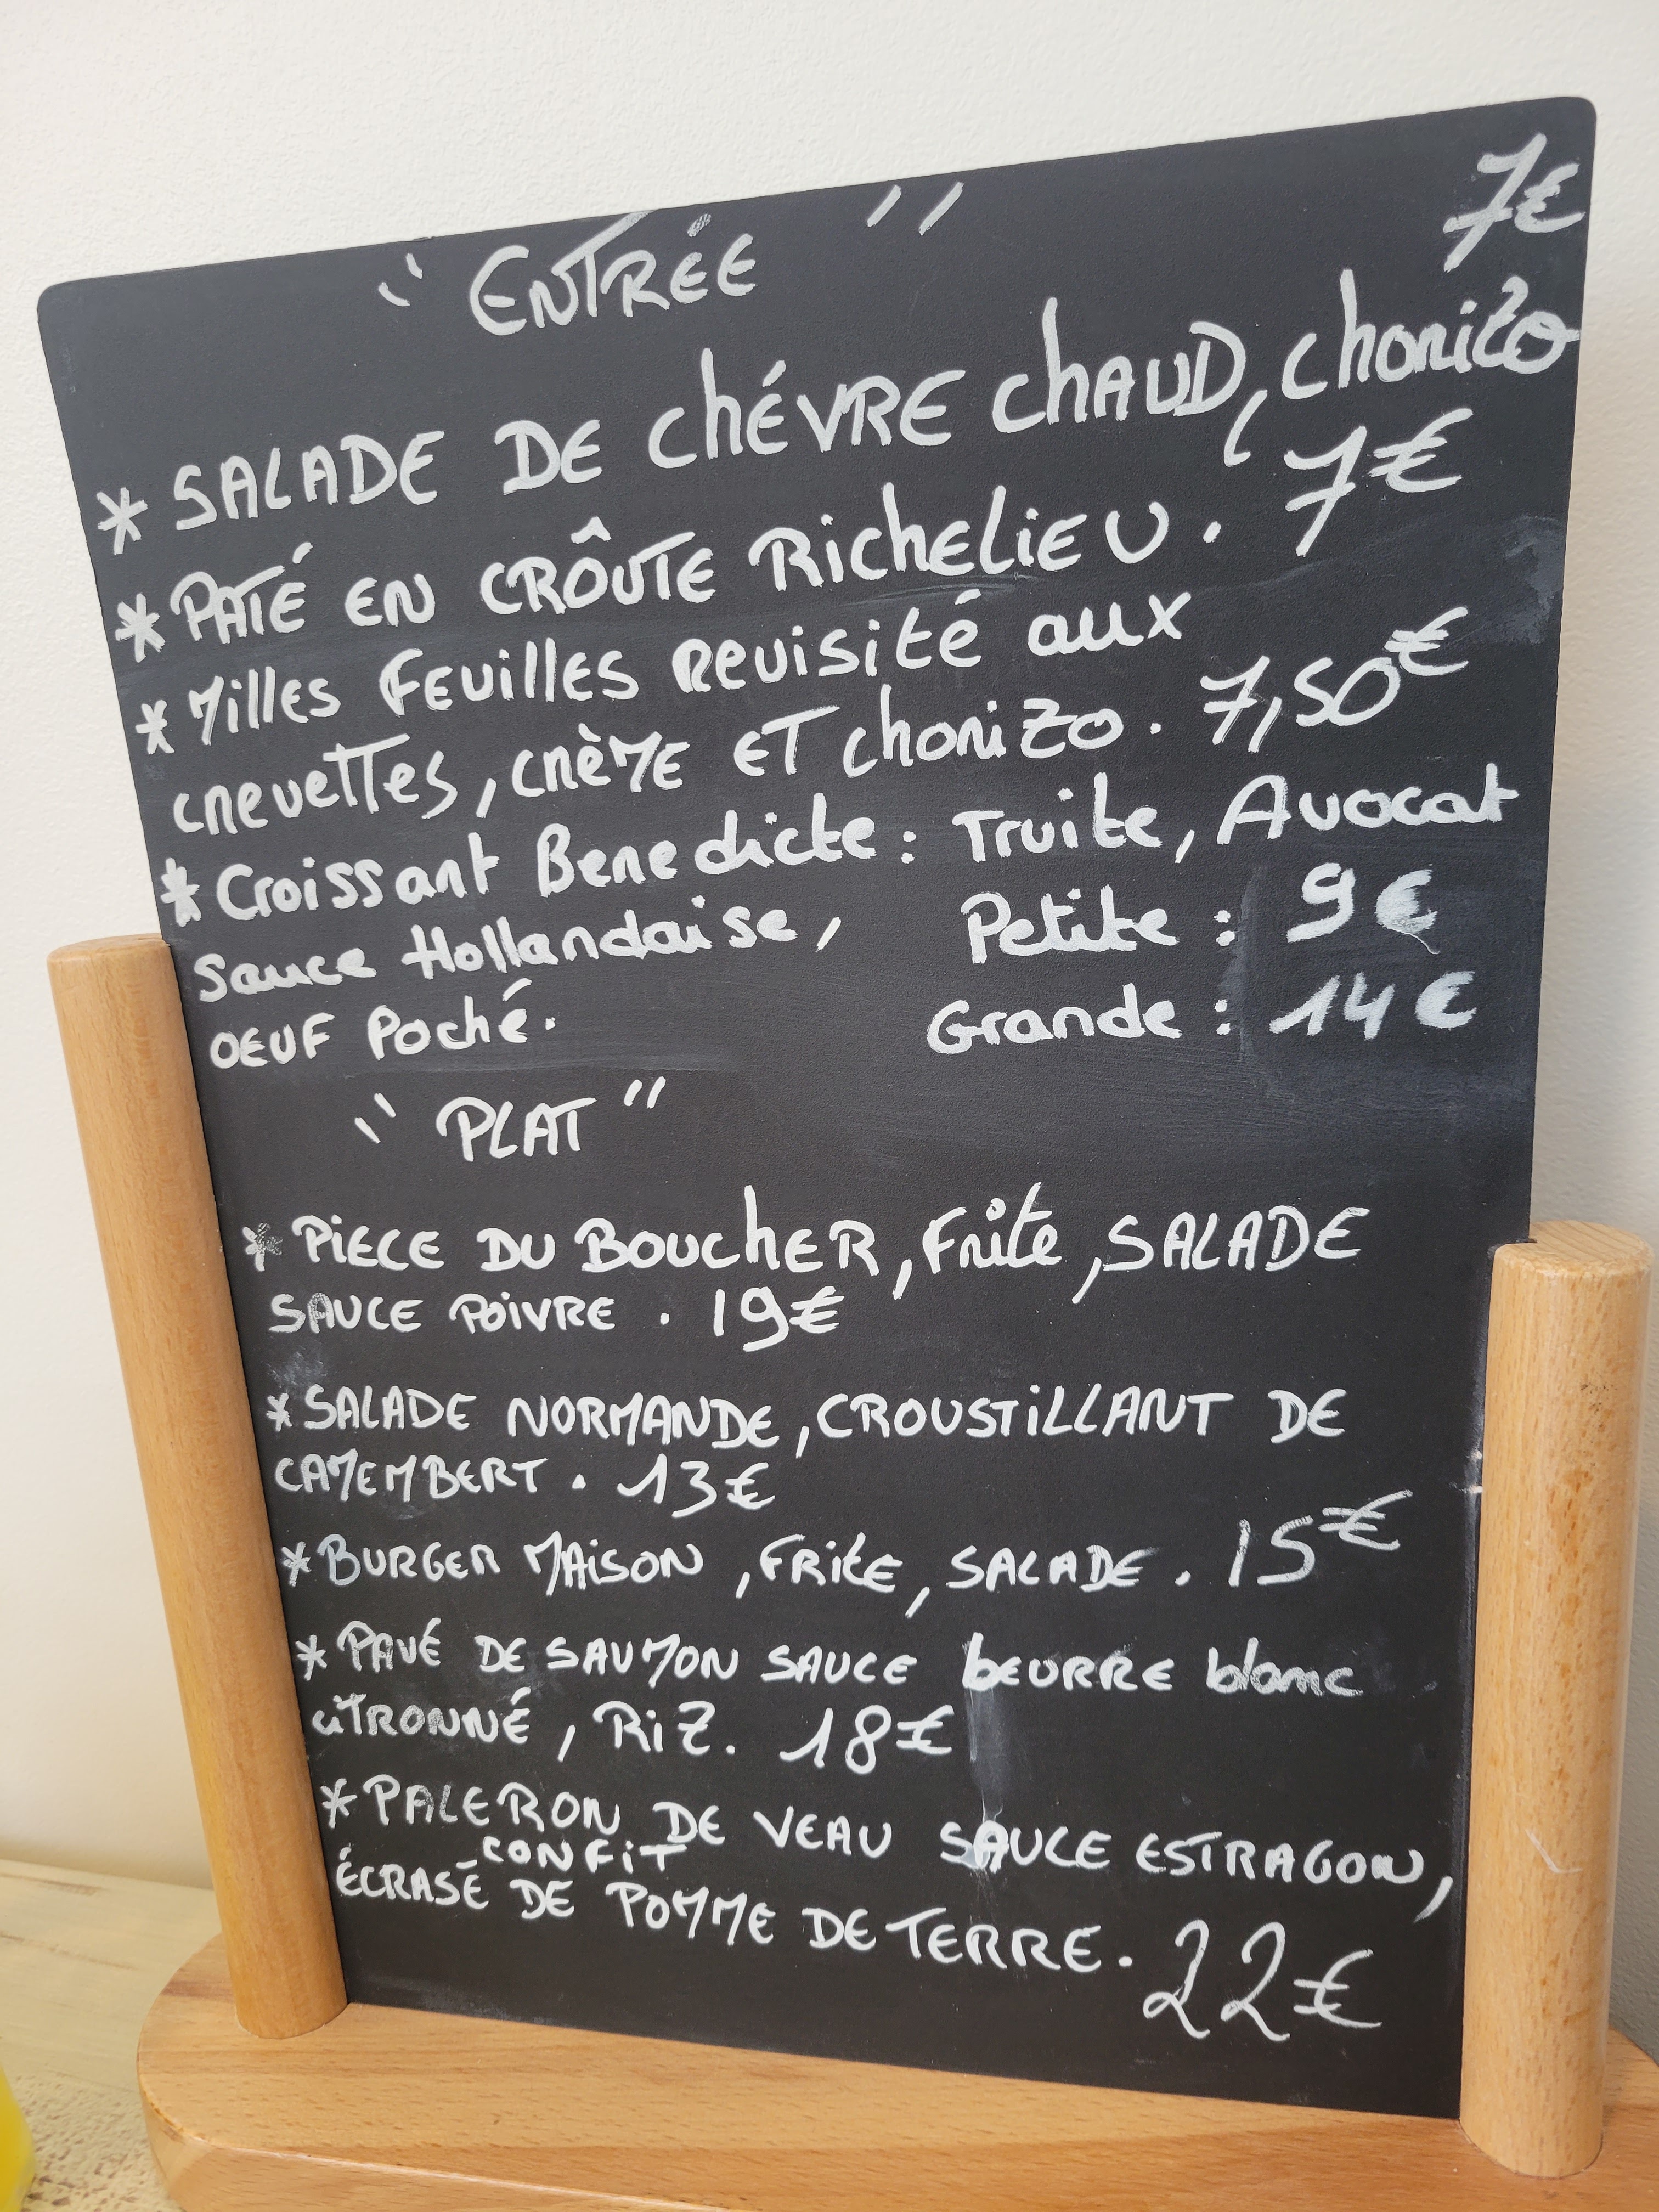 " ENTRÉE " 7€
* SALADE DE ChÉVRE ChAUD, chorizo
* PATÉ EN CRÔUTE RichELiEU . 7€
* MillES FEUillES REVisité aux
crevettes, crèME ET chorizo . 7,50€
* Croissant Benedicte : Truite, Avocat
Sauce Hollandaise, Petite : 9€
OEUF Poché. Grande : 14€
" PLAT "
* PiECE DU BOUchER, Frîte, SALADE
SAUCE POiVRE . 19€
* SALADE NORMANDE, CROUSTiLLANT DE
CAMEMBERT . 13€
* BURGER MAiSON, FRitE, SALADE . 15€
* PAVÉ DE SAUMON SAUCE bEURRE blanc
ciTRONNÉ, RiZ. 18€
* PALERON DE VEAU SAUCE ESTRAGON,
CONFiT
ÉCRASÉ DE POMME DE TERRE. 22€